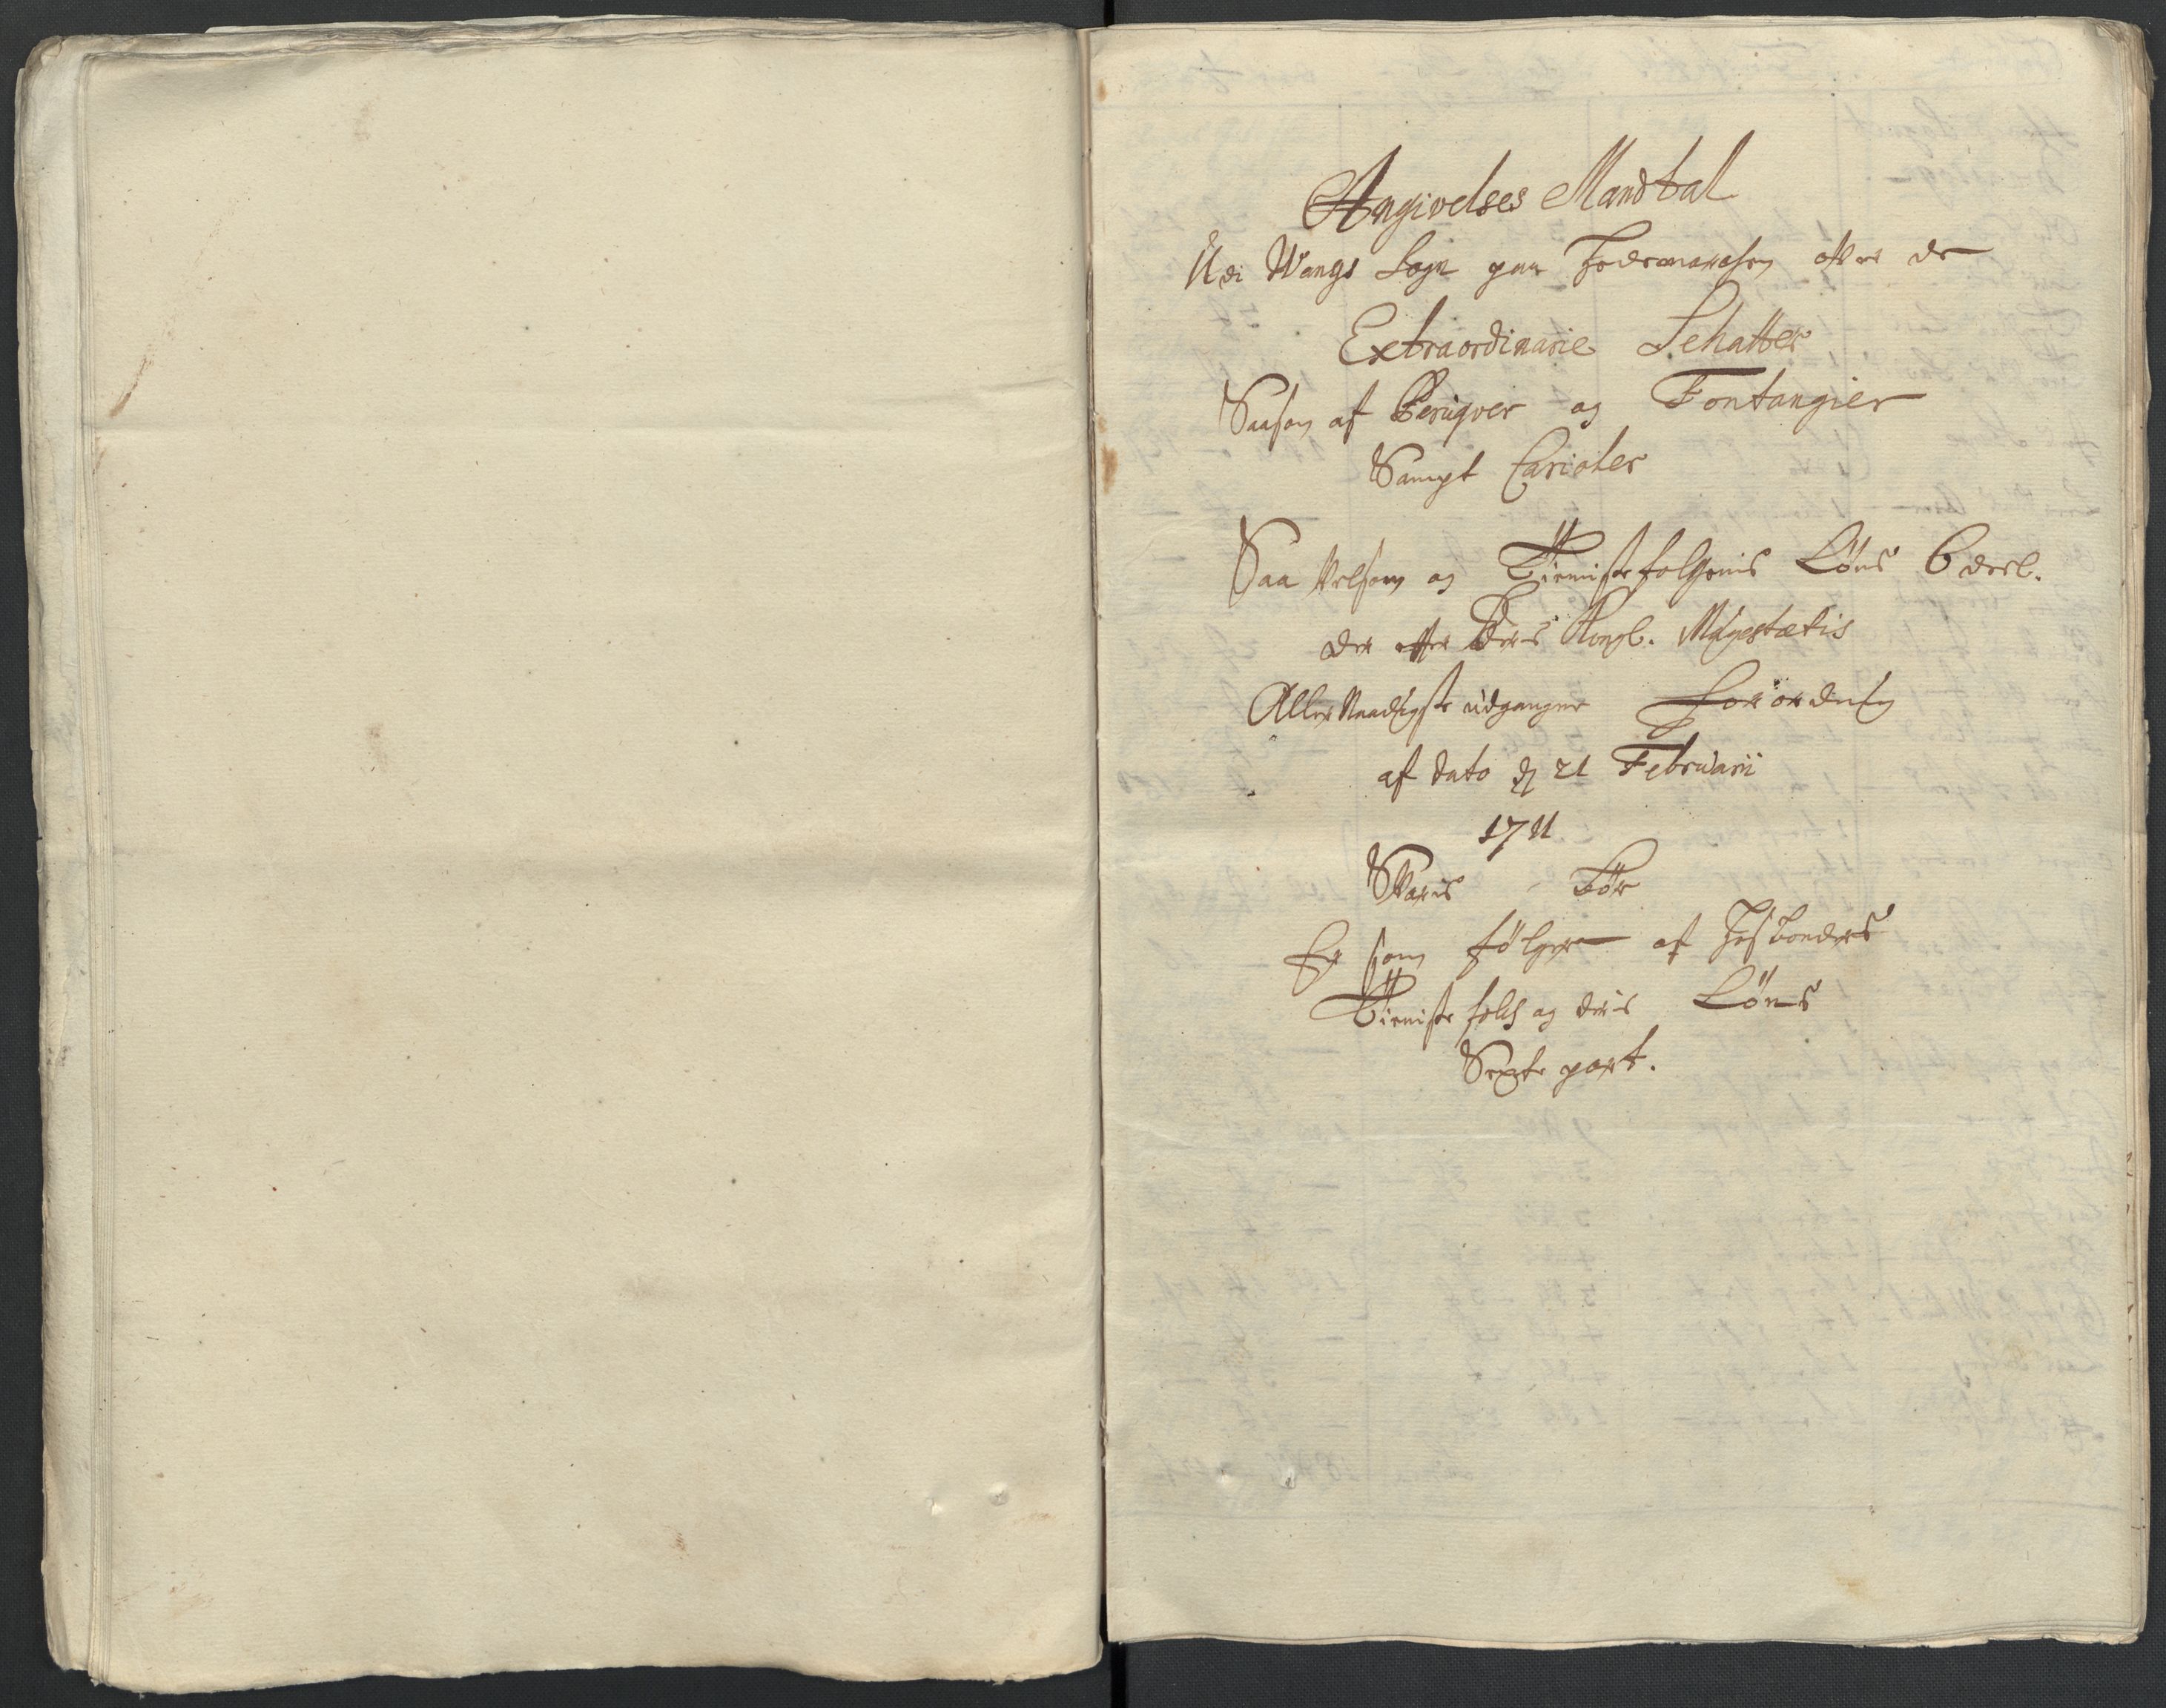 Angivelses Mandtal
Udi Wangs Sogn paa Hedemarchen ofver de
Extraordinarie Schatter
Saasom af Peruqver og Fontangier
Sampt Carioler
Saa Velsom og Tienistefolgenis Løns 6 deel.
der effter Deris Kongl. Mayestætis
Aller Naadigste udgangne Forordning
af dato d 21 Februarii
1711
Svaris Bør
Er som følger af Hosbonders
Tieniste folch og deris Løns
Siette part.